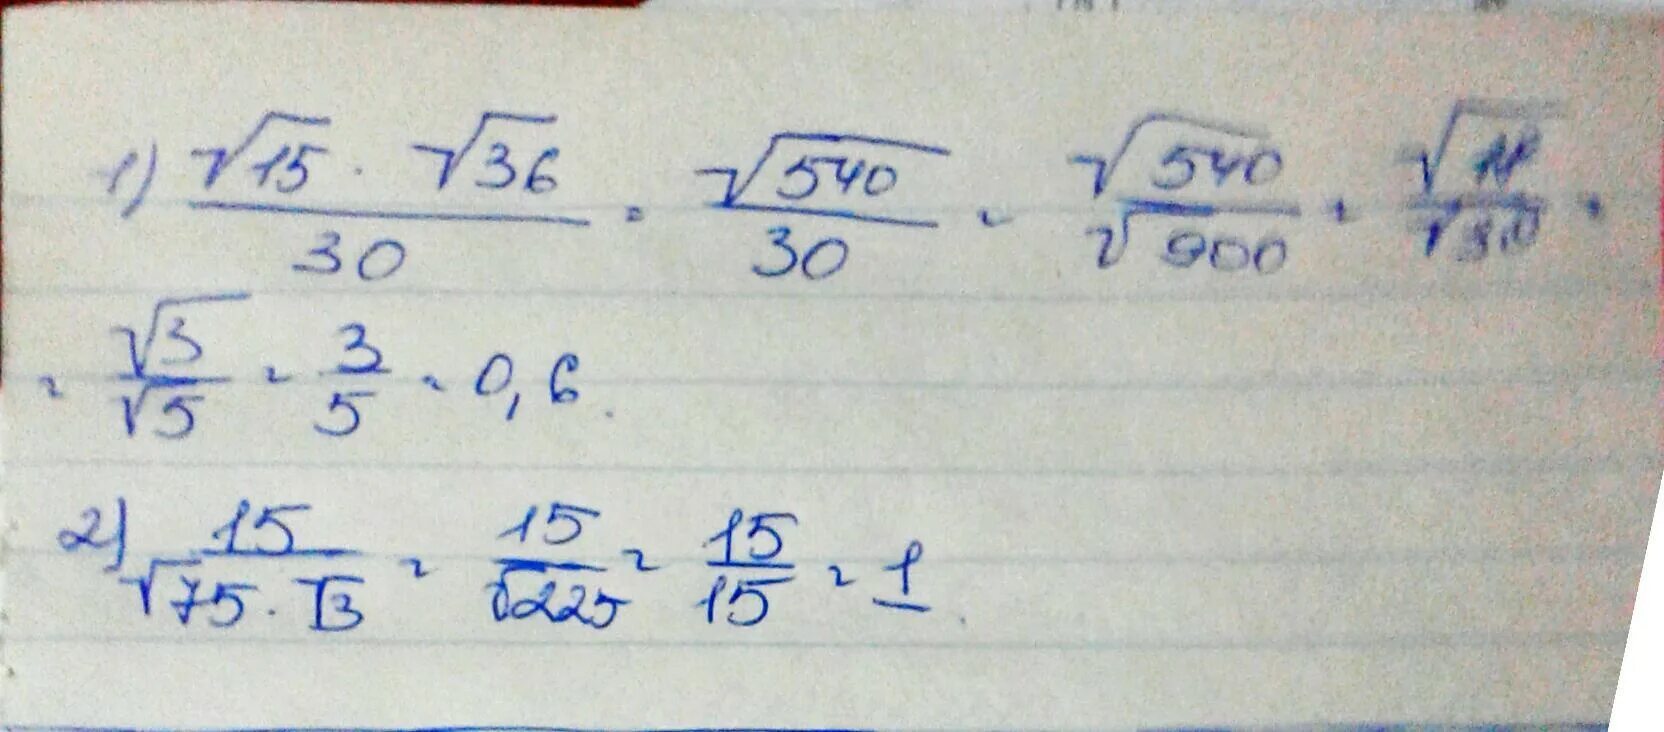 1) √15 · √36 / 30 = √540 / 30 = √540 / √900 =
= √3 / √5 = 3 / 5 = 0,6.
2) 15 / √75 · √3 = 15 / √225 = 15 / 15 = 1.